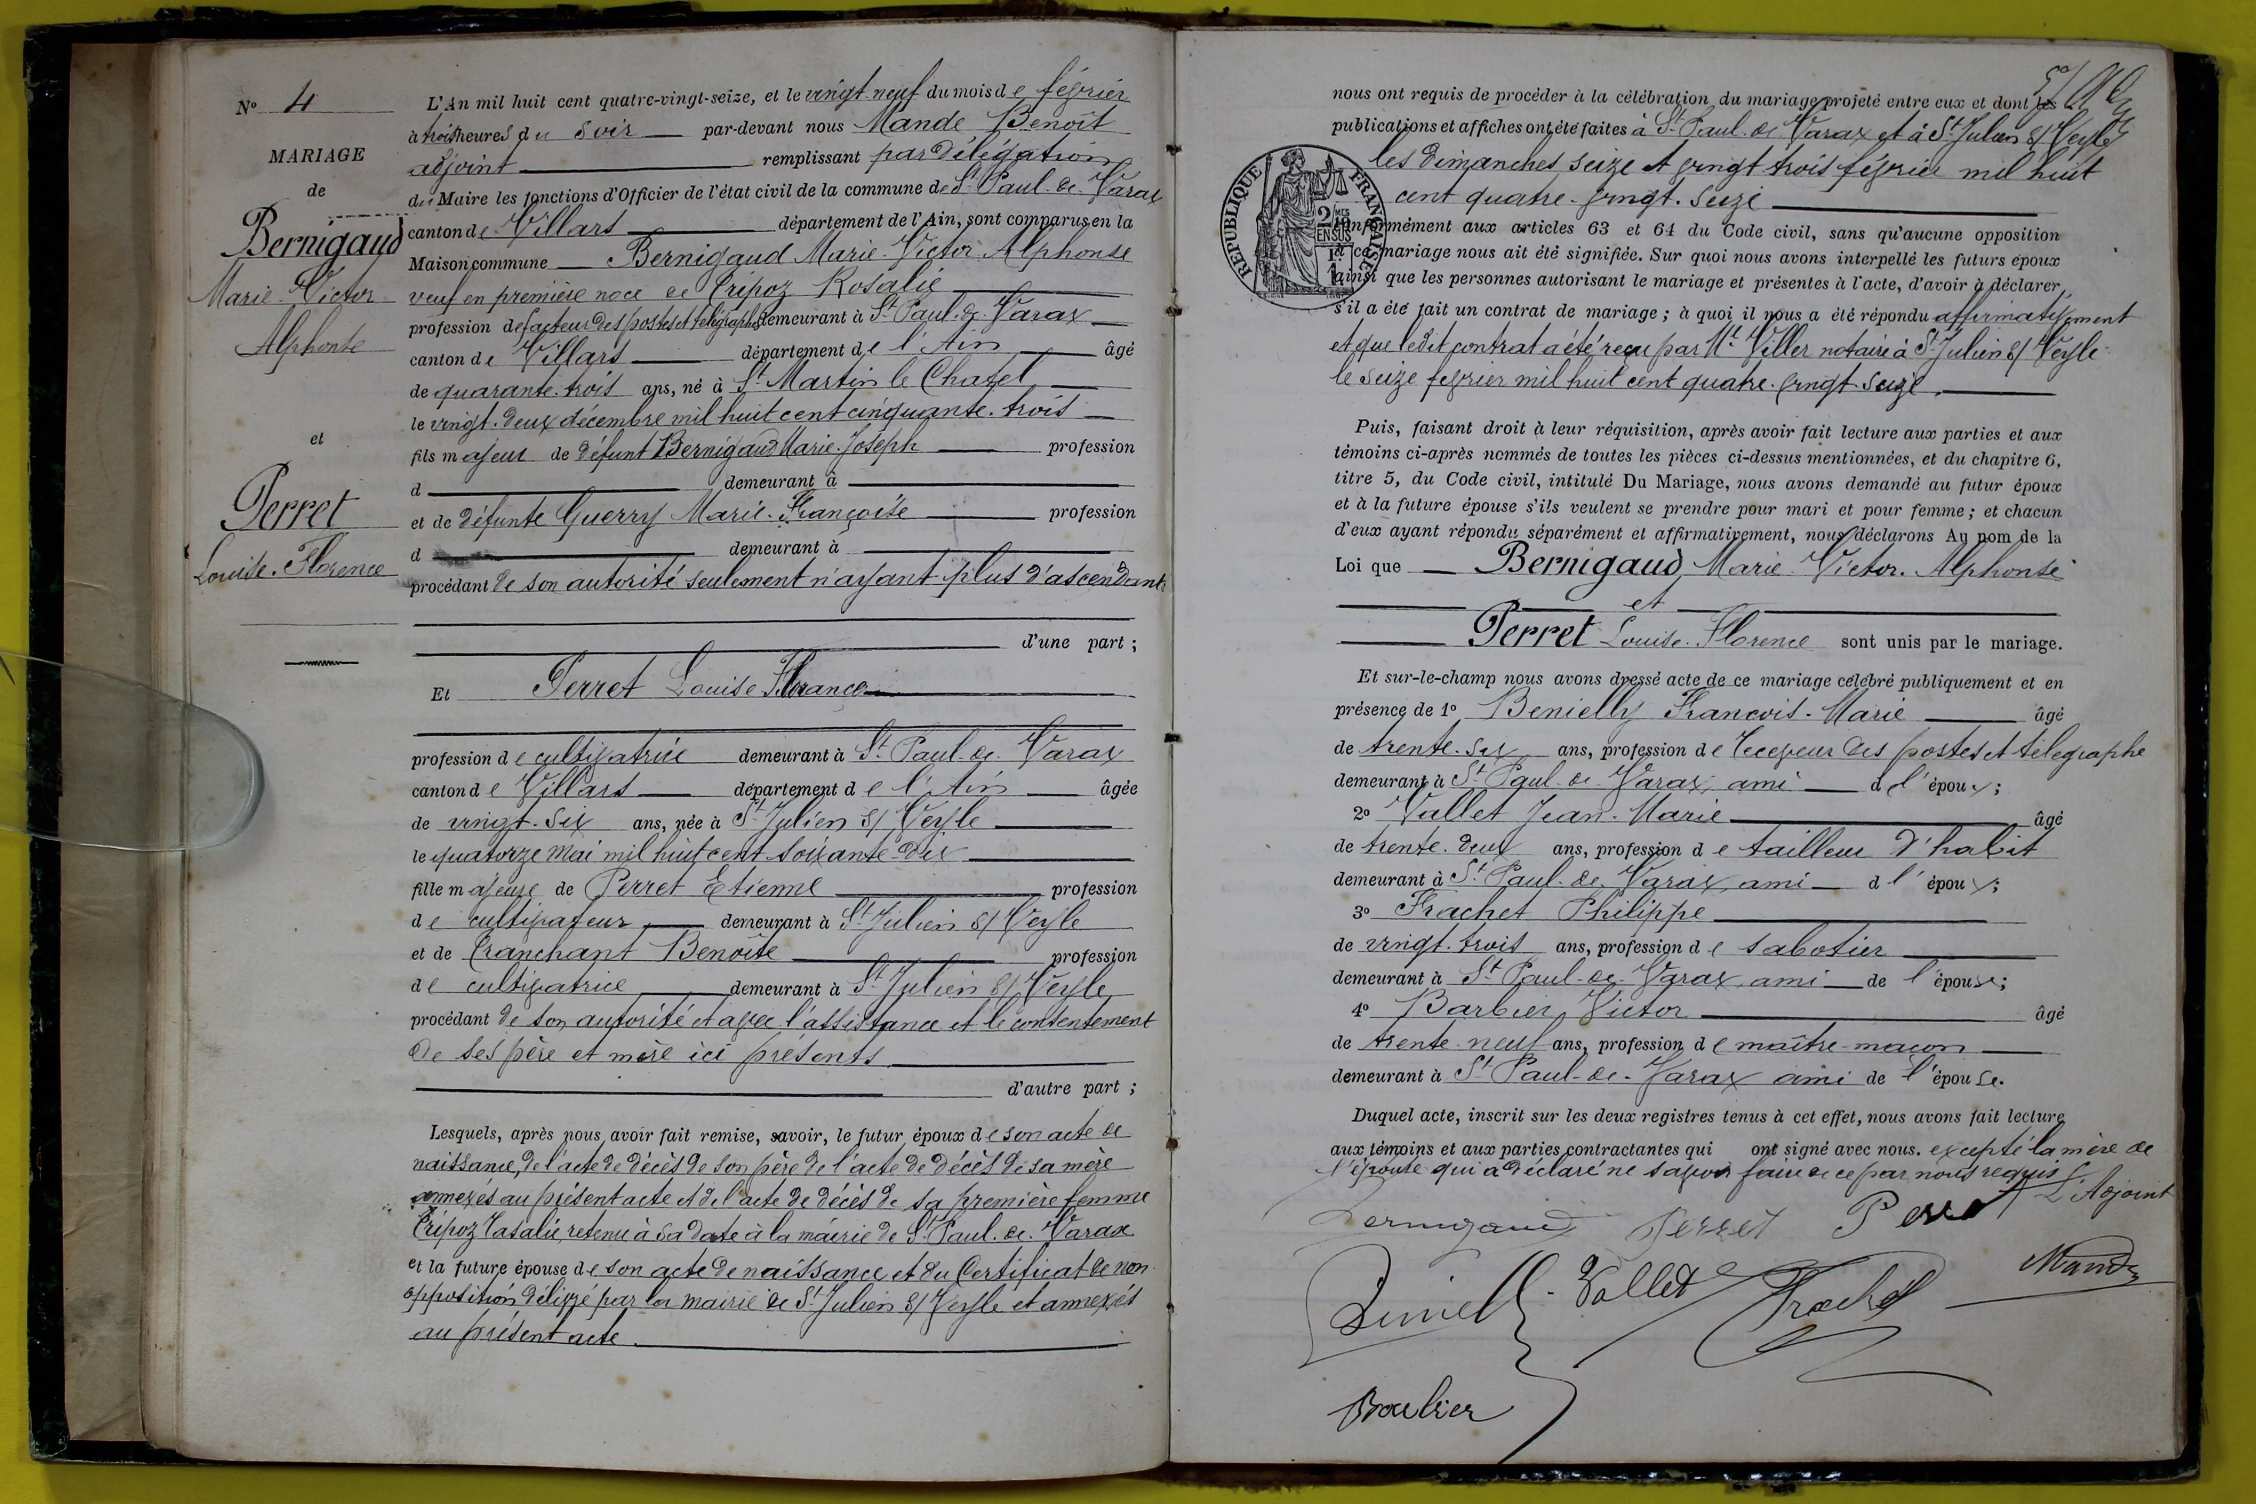 N° 4
MARIAGE
de
Bernigaud
Marie-Victor
Alphonse
et
Perret
Louise-Florence
L'An mil huit cent quatre-vingt-seize, et le vingt-neuf du mois de février
à trois heures du soir par-devant nous Mande Benoît
adjoint remplissant par délégation
du Maire les fonctions d'Officier de l'état civil de la commune de St Paul-de-Varax
canton de Villars département de l'Ain, sont comparus en la
Maison commune Bernigaud Marie-Victor Alphonse
veuf en première noce de Cripoz Rosalie
profession de facteur des postes et télégraphes demeurant à St Paul-de-Varax
canton de Villars département de l'Ain âgé
de quarante-trois ans, né à St Martin le Chatel
le vingt-deux décembre mil huit cent cinquante-trois
fils majeur de défunt Bernigaud Marie-Joseph profession
d demeurant à
et de défunte Guerry Marie-Françoise profession
d demeurant à
procédant de son autorité seulement n'ayant plus d'ascendants
d'une part ;
Et Perret Louise Florance
profession de cultivatrice demeurant à St Paul-de-Varax
canton de Villars département de l'Ain âgée
de vingt-six ans, née à St Julien s/ Veyle
le quatorze mai mil huit cent soixante-dix
fille majeure de Perret Etienne profession
de cultivateur demeurant à St Julien s/ Veyle
et de Tranchant Benoîte profession
de cultivatrice demeurant à St Julien s/ Veyle
procédant de son autorité et avec l'assistance et le consentement
de ses père et mère ici présents
d'autre part ;
Lesquels, après nous avoir fait remise, savoir, le futur époux de son acte de
naissance, de l'acte de décès de son père de l'acte de décès de sa mère
annexés au présent acte et de l'acte de décès de sa première femme
Cripoz Rasalie, retenu à sa date à la mairie de St Paul-de-Varax
et la future épouse de son acte de naissance et du Certificat de non-
opposition délivré par la mairie de St Julien s/ Veyle et annexés
au présent acte
nous ont requis de procéder à la célébration du mariage projeté entre eux et dont les
publications et affiches ont été faites à St Paul-de-Varax et à St Julien s/ Veyle
les dimanches seize et vingt trois février mil huit
cent quatre-vingt-seize
RÉPUBLIQUE FRANÇAISE
conformément aux articles 63 et 64 du Code civil, sans qu'aucune opposition
à ce mariage nous ait été signifiée. Sur quoi nous avons interpellé les futurs époux
ainsi que les personnes autorisant le mariage et présentes à l'acte, d'avoir à déclarer
s'il a été fait un contrat de mariage ; à quoi il nous a été répondu affirmativement
et que ledit contrat a été reçu par Mt Viller notaire à St Julien s/ Veyle
le seize février mil huit cent quatre-vingt-seize
Puis, faisant droit à leur réquisition, après avoir fait lecture aux parties et aux
témoins ci-après nommés de toutes les pièces ci-dessus mentionnées, et du chapitre 6,
titre 5, du Code civil, intitulé Du Mariage, nous avons demandé au futur époux
et à la future épouse s'ils veulent se prendre pour mari et pour femme ; et chacun
d'eux ayant répondu séparément et affirmativement, nous déclarons Au nom de la
Loi que Bernigaud Marie-Victor-Alphonse
et
Perret Louise-Florence sont unis par le mariage.
Et sur-le-champ nous avons dressé acte de ce mariage célébré publiquement et en
présence de 1° Benielly Francois-Marie âgé
de trente-six ans, profession de receveur des postes et télegraphe
demeurant à St Paul-de-Varax, ami de l'époux ;
2° Vallet Jean-Marie âgé
de trente-deux ans, profession de tailleur d'habit
demeurant à St Paul-de-Varax, ami de l'époux ;
3° Frachet Philippe
de vingt-trois ans, profession de sabotier
demeurant à St Paul-de-Varax, ami de l'épouse ;
4° Barbier Victor âgé
de trente-neuf ans, profession de maître-maçon
demeurant à St Paul-de-Varax ami de l'épouse.
Duquel acte, inscrit sur les deux registres tenus à cet effet, nous avons fait lecture
aux témoins et aux parties contractantes qui ont signé avec nous. excepté la mère de
l'épouse qui a déclaré ne savoir faire de ce par nous requis
L'Adjoint
Bernigaud Perret Perret
Mande
Benielly Vallet Frachet
Barbier